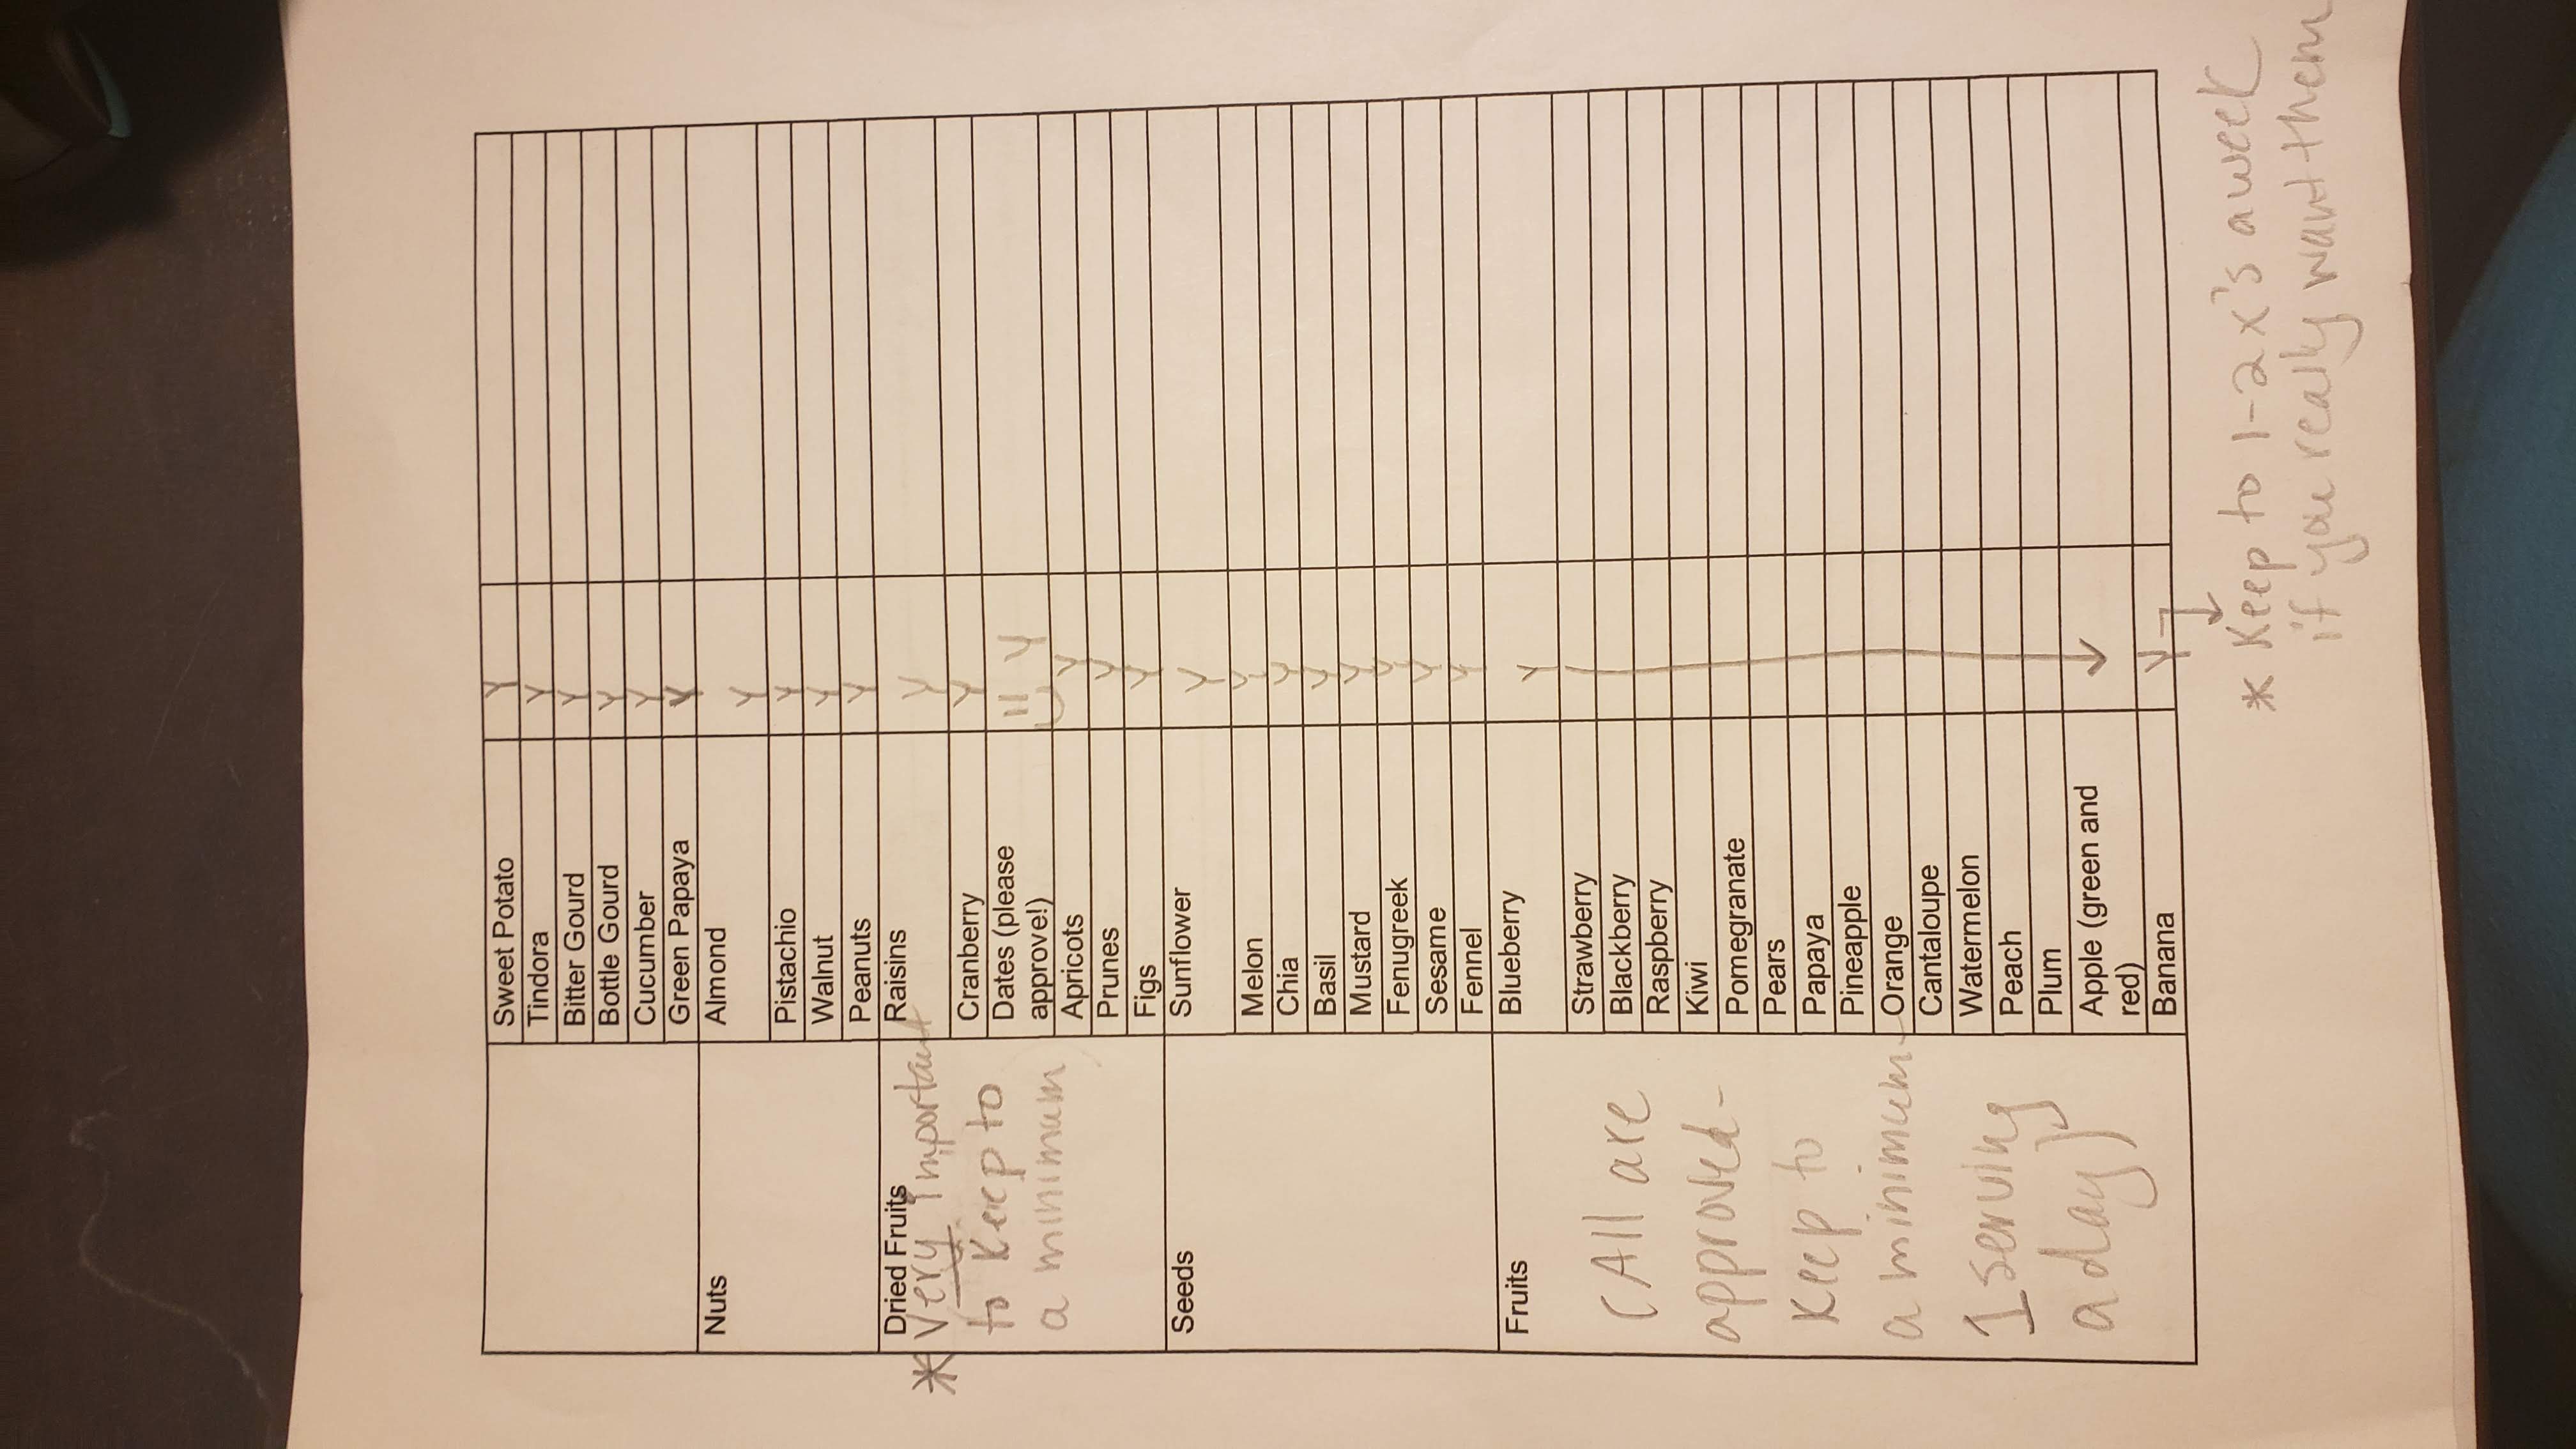 Sweet Potato Y
Tindora Y
Bitter Gourd Y
Bottle Gourd Y
Cucumber Y
Green Papaya Y
Nuts Almond Y
Pistachio Y
Walnut Y
Peanuts Y
Dried Fruits Raisins Y
* Very important
to keep to
a minimum
Cranberry Y
Dates (please
approve!) Y
Apricots Y
Prunes Y
Figs Y
Seeds Sunflower Y
Melon Y
Chia Y
Basil Y
Mustard Y
Fenugreek Y
Sesame Y
Fennel Y
Fruits Blueberry Y
(All are
approved-
Keep to
a minimum-
1 serving
a day)
Strawberry
Blackberry
Raspberry
Kiwi
Pomegranate
Pears
Papaya
Pineapple
Orange
Cantaloupe
Watermelon
Peach
Plum
Apple (green and
red)
Banana Y
* Keep to 1-2 x's a week
if you really want them